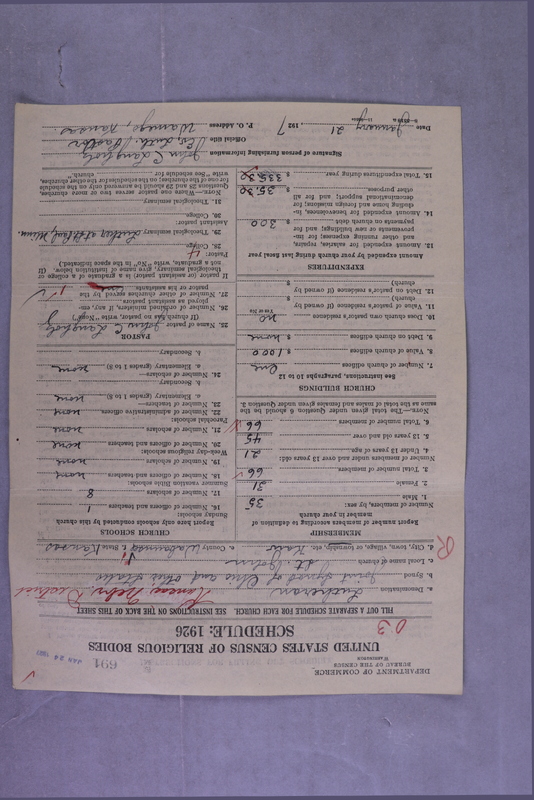 DEPARTMENT OF COMMERCE
BUREAU OF THE CENSUS
WASHINGTON
691
UNITED STATES CENSUS OF RELIGIOUS BODIES
SCHEDULE: 1926
03
FILL OUT A SEPARATE SCHEDULE FOR EACH CHURCH. SEE INSTRUCTIONS ON THE BACK OF THIS SHEET
a. Denomination Lutheran Kansas Nebr. District
b. Synod Joint Synod of Ohio and other States
c. Local name of church St. John's
d. City, town, village, or township, etc.
e. County Wabaunsee, State Kansas
R
MEMBERSHIP
Report number of members according to definition of
member in your church
Number of members, by sex:
1. Male 35
2. Female 31
3. Total number of members 66
Number of members under and over 13 years old:
4. Under 13 years of age 21
5. 13 years old and over 45
6. Total number of members 66
NOTE.—The total given under Question 6 should be the
same as the total of males and females given under Question 3.
CHURCH BUILDINGS
See instructions, paragraphs 10 to 12
7. Number of church edifices one
8. Value of church edifices $ 1000
9. Debt on church edifices $ none
10. Does church own pastor's residence no
Yes or No
11. Value of pastor's residence (if owned by
church) $
12. Debt on pastor's residence (if owned by
church) $
EXPENDITURES
Amount expended by your church during last fiscal year
13. Amount expended for salaries, repairs,
and other running expenses; for im-
provements or new buildings; and for
payments on church debt $ 300
14. Amount expended for benevolences, in-
cluding home and foreign missions; for
denominational support; and for all
other purposes $ 35.30
15. Total expenditures during year $ 335.30
CHURCH SCHOOLS
Report here only schools conducted by this church
Sunday schools:
16. Number of officers and teachers 1
17. Number of scholars 8
Summer vacation Bible schools:
18. Number of officers and teachers none
19. Number of scholars none
Week-day religious schools:
20. Number of officers and teachers none
21. Number of scholars none
Parochial schools:
22. Number of administrative officers none
23. Number of teachers—
a. Elementary (grades 1 to 8) none
b. Secondary
24. Number of scholars—
a. Elementary (grades 1 to 8) none
b. Secondary
PASTOR
25. Name of pastor John C. Langholz
(If church has no pastor, write "None")
26. Number of ordained ministers, if any, em-
ployed as assistant pastors
27. Number of other churches served by the
pastor or his assistants 1
If pastor (or assistant pastor) is a graduate of a college or
theological seminary, give name of institution below. (If
not a graduate, write "No" in the space indicated.)
Pastor:
28. College
29. Theological seminary Luther at St. Paul, Minn.
Assistant pastor:
30. College
31. Theological seminary
NOTE.—Where one pastor serves two or more churches,
Questions 28 and 29 should be answered only on the schedule
for one of the churches; on the schedules for the other churches,
write "See schedule for church."
Signature of person furnishing information John C. Langholz
Official title Ev. Luth. Pastor
P. O. Address Wamego, Kansas
Date January 21, 1927